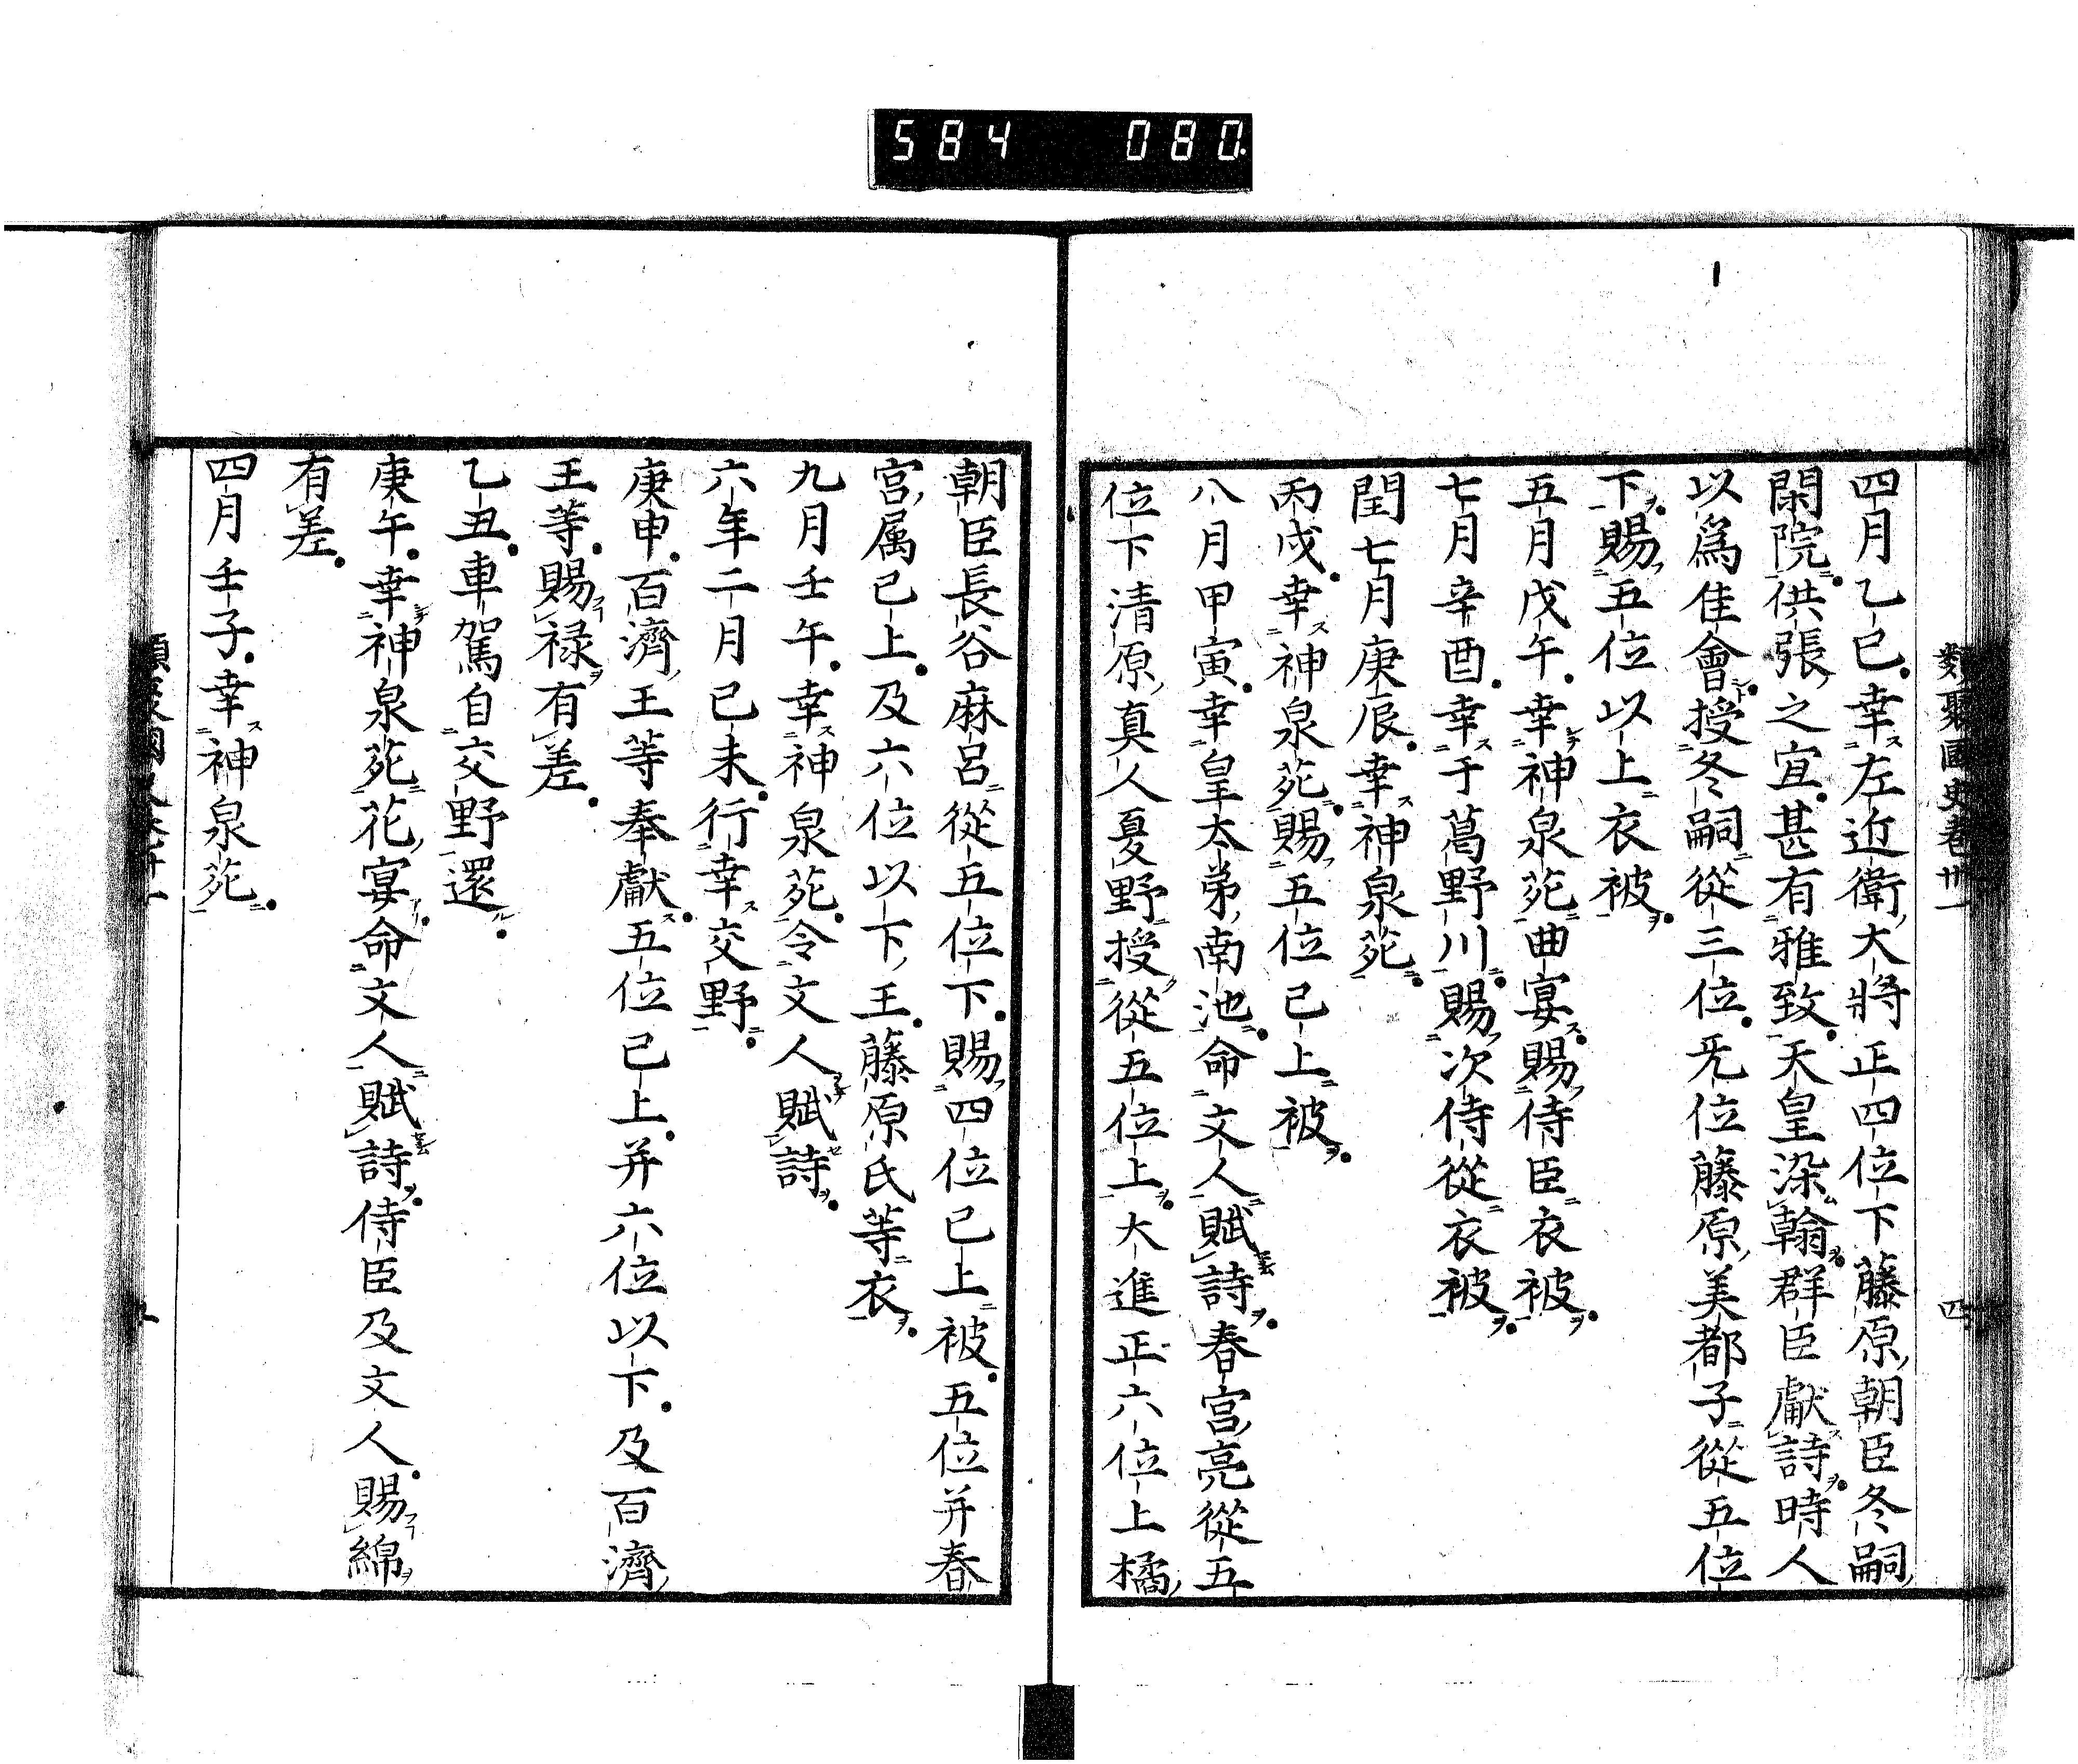 584 080
類聚國史卷卅一
四
四月乙巳幸左近衛大將正四位下藤原朝臣冬嗣
閑院供張之宜甚有雅致天皇染翰群臣獻詩時人
以爲佳會授冬嗣從三位旡位藤原美都子從五位
下賜五位以上衣被
五月戊午幸神泉苑曲宴賜侍臣衣被
七月辛酉幸于葛野川賜次侍從衣被
閏七月庚辰幸神泉苑
丙戌幸神泉苑賜五位已上被
八月甲寅幸皇太弟南池命文人賦詩春宮亮從五
位下清原真人夏野授從五位上大進正六位上橘
朝臣長谷麻呂從五位下賜四位已上被五位并春
宮属已上及六位以下王藤原氏等衣
九月壬午幸神泉苑令文人賦詩
六年二月己未行幸交野
庚申百濟王等奉獻五位已上并六位以下及百濟
王等賜禄有差
乙丑車駕自交野還
庚午幸神泉苑花宴命文人賦詩侍臣及文人賜綿
有差
四月壬子幸神泉苑